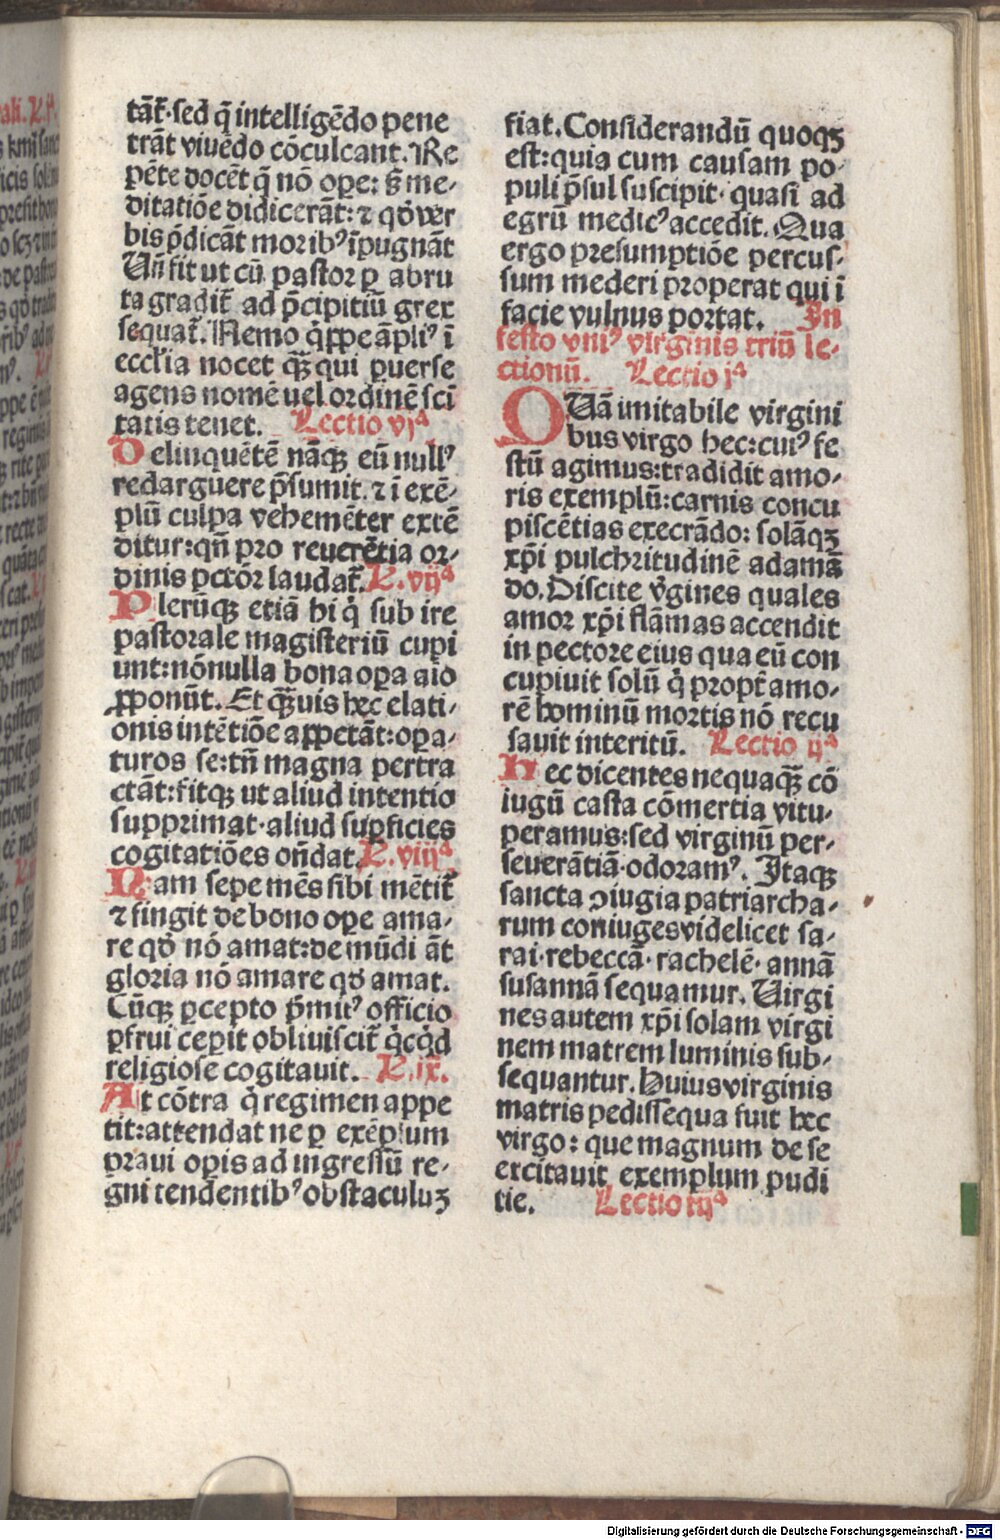 tãt᷑·sed q̃ intelligẽdo pene
trãt viuẽdo cõculcant. Re
pẽte docẽt q̃ nõ oꝑe: s̃ me-
ditatiõe didicerãt: ⁊ qđ ver
bis p̃dicãt morib⁹ ĩpugnãt
Uñ fit ut cũ pastor ꝑ abru
ta gradit᷑ ad p̃cipitiũ grex
sequat᷑. Nemo q̃ppe ãpli⁹ ĩ
eccl'ia nocet q̃ꝫ qui ꝑuerse
agens nomẽ uel ordinẽ sci
tatis tenet. Lectio vjᵃ
Delinquẽtẽ nãqꝫ eũ null⁹
redarguere p̃sumit. ⁊ ĩ exẽ-
plũ culpa vehemẽter extẽ
ditur: qñ pro reuerẽtia or-
dinis pctõr laudat᷑. L. vijᵃ
Plerũqꝫ etiã hi q̇ sub ire
pastorale magisteriũ cupi
unt: nõnulla bona opa aĩo
ꝓponũt. Et q̃ꝫuis hec elati-
onis intẽtiõe aꝑpetãt: opa-
turos se: tñ magna pertra
ctãt: fitqꝫ ut aliud intentio
supprimat· aliud suꝑficies
cogitatiões oñdat. L. viijᵃ
Nam sepe mẽs sibi mẽtit᷑
⁊ fingit de bono oꝑe ama-
re qđ nõ amat: de mũdi ãt
gloria nõ amare qđ amat.
Cũqꝫ ꝑcepto p̃mit⁹ officio
ꝑfrui cepit obliuiscit᷑ q̇cq̇d
religiose cogitauit. L. ix.
At cõtra q̃ regimen appe
tit: attendat ne ꝑ exẽplum
praui oꝑis ad ingressũ re-
gni tendentib⁹ obstaculuꝫ
fiat. Considerandũ quoqꝫ
est: quia cum causam po-
puli p̃sul suscipit· quasi ad
egrũ medic⁹ accedit. Qua
ergo presumptiõe percus-
sum mederi properat qui ĩ
facie vulnus portat. In
festo vni⁹ virginis triũ le-
ctionũ. Lectio jᵃ
QUã imitabile virgini
bus virgo hec: cui⁹ fe
stũ agimus: tradidit amo-
ris exemplũ: carnis concu
piscẽtias execrãdo: solãqꝫ
xp̃i pulchritudinẽ adamã
do. Discite v̓gines quales
amor xp̃i flãmas accendit
in pectore eius qua eũ con
cupiuit solũ q̇ propt̃ amo-
rẽ hominũ mortis nõ recu
sauit interitũ. Lectio ijᵃ
Hec dicentes nequaq̃ꝫ cõ
iugũ casta cõmertia vitu-
peramus: sed virginũ per-
seuerãtiã· odoram⁹. Itaqꝫ
sancta ꝯiugia patriarcha-
rum coniuges videlicet sa-
rai· rebeccã· rachelẽ· annã
susannã sequamur. Uirgi
nes autem xp̃i solam virgi
nem matrem luminis sub-
sequantur. Huius virginis
matris pedissequa fuit hec
virgo: que magnum de se
excitauit exemplum pudi
tie. Lectio iijᵃ
Digitalisierung gefördert durch die Deutsche Forschungsgemeinschaft - DFG